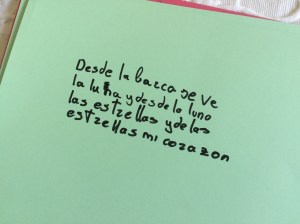 Desde la barca se ve
la luna y desde la luna
las estrellas y de las
estrellas mi corazon